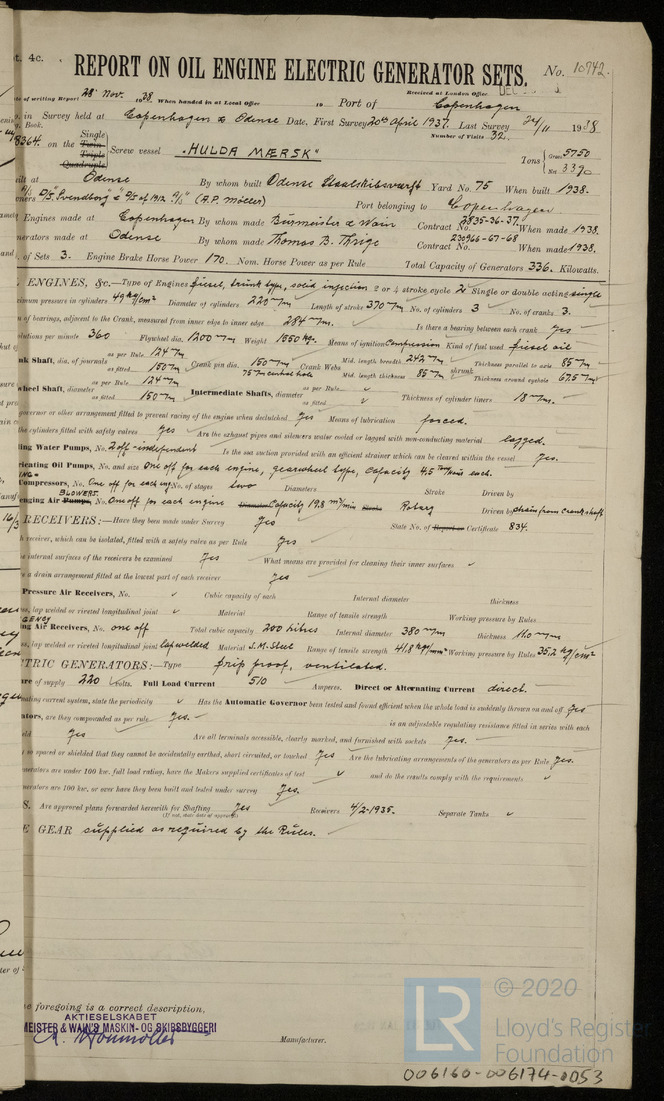 t. 4c.
REPORT ON OIL ENGINE ELECTRIC GENERATOR SETS.
No. 10742.
Received at London Office
te of writing Report 28 Nov. 1938 When handed in at Local Office 19 Port of Copenhagen
in Survey held at Copenhagen & Odense Date. First Survey 20th April 1937. Last Survey 24/11 1938
Book. Number of Visits 32.
8364. on the Single Twin Triple Quadruple Screw vessel "HULDA MÆRSK" Tons { Gross 5750 Net 3390
ilt at Odense By whom built Odense Staalskibsværft Yard No. 75 When built 1938.
ners D/S "Svendborg" & D/S of 1912 A/S (A.P. Möller) Port belonging to Copenhagen
Engines made at Copenhagen By whom made Burmeister & Wain Contract No. 2835-36-37. When made 1938.
nerators made at Odense By whom made Thomas B. Thrige Contract No. 230966-67-68 When made 1938.
of Sets 3. Engine Brake Horse Power 170. Nom. Horse Power as per Rule Total Capacity of Generators 336. Kilowatts.
ENGINES, &c.—Type of Engines Diesel, trunk type, solid injection 2 or 4 stroke cycle 2 Single or double acting single
ximum pressure in cylinders 49 kg/cm² Diameter of cylinders 220 m/m Length of stroke 370 m/m No. of cylinders 3 No. of cranks 3.
n of bearings, adjacent to the Crank, measured from inner edge to inner edge 284 m/m. Is there a bearing between each crank Yes
olutions per minute 360 Flywheel dia. 1200 m/m Weight 1050 kg. Means of ignition Compression Kind of fuel used Diesel oil
nk Shaft, dia. of journals as per Rule 124 m/m as fitted 150 m/m Crank pin dia. 150 m/m 75 m/m central hole Crank Webs Mid. length breadth 242 m/m Mid. length thickness 85 m/m shrunk Thickness parallel to axis 85 m/m Thickness around eyehole 67.5 m/m
wheel Shaft, diameter as per Rule 124 m/m as fitted 150 m/m Intermediate Shafts, diameter as per Rule as fitted Thickness of cylinder liners 18 m/m.
governor or other arrangement fitted to prevent racing of the engine when declutched Yes Means of lubrication forced.
the cylinders fitted with safety valves Yes Are the exhaust pipes and silencers water cooled or lagged with non-conducting material lagged.
ing Water Pumps, No. 2 off - independent Is the sea suction provided with an efficient strainer which can be cleared within the vessel Yes.
ricating Oil Pumps, No. and size One off for each engine, gearwheel type, capacity 4.5 each.
Compressors, No. One off for each eng No. of stages two Diameters Stroke Driven by
enging Air Pumps, BLOWERS. No. One off for each engine Diameter Capacity 19.8 m³/min Stroke Rotary Driven by chain from crankshaft
RECEIVERS:—Have they been made under Survey Yes State No. of Report or Certificate 834.
h receiver, which can be isolated, fitted with a safety valve as per Rule Yes
e internal surfaces of the receivers be examined Yes What means are provided for cleaning their inner surfaces
e a drain arrangement fitted at the lowest part of each receiver Yes
Pressure Air Receivers, No. Cubic capacity of each Internal diameter thickness
ss, lap welded or riveted longitudinal joint Material Range of tensile strength Working pressure by Rules
ng Air Receivers, No. one off Total cubic capacity 200 Litres Internal diameter 380 m/m thickness 11.0 m/m
ss, lap welded or riveted longitudinal joint lap welded Material S.M. Steel Range of tensile strength 41.8 kg/mm² Working pressure by Rules 35.2 kg/cm²
TRIC GENERATORS:—Type Drip proof, ventilated.
re of supply 220 volts. Full Load Current 510 Amperes. Direct or Alternating Current direct.
nating current system, state the periodicity Has the Automatic Governor been tested and found efficient when the whole load is suddenly thrown on and off Yes
ators, are they compounded as per rule Yes. is an adjustable regulating resistance fitted in series with each
ld Yes Are all terminals accessible, clearly marked, and furnished with sockets Yes.
so spaced or shielded that they cannot be accidentally earthed, short circuited, or touched Yes Are the lubricating arrangements of the generators as per Rule Yes.
nerators are under 100 kw. full load rating, have the Makers supplied certificates of test and do the results comply with the requirements
nerators are 100 kw. or over have they been built and tested under survey Yes.
S. Are approved plans forwarded herewith for Shafting Yes Receivers 4/2-1935. Separate Tanks
(If not, state date of approval)
E GEAR supplied as required by the Rules.
e foregoing is a correct description,
AKTIESELSKABET
MEISTER & WAIN'S MASKIN- OG SKIBSBYGGERI
Manufacturer.
© 2020
LR
Lloyd's Register
Foundation
006160-006174-0053